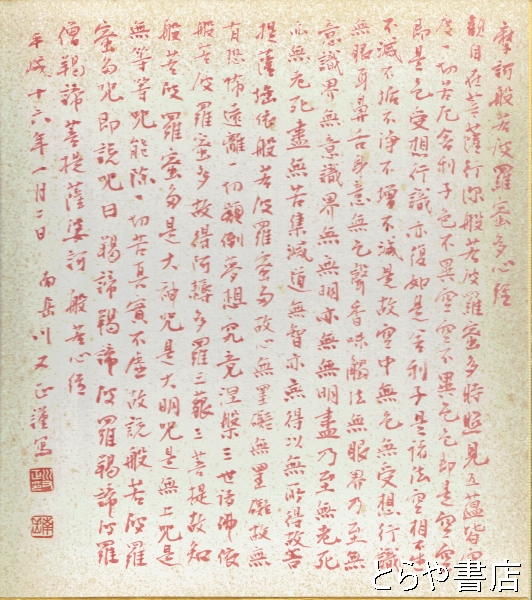 摩訶般若波羅蜜多心経
観自在菩薩行深般若波羅蜜多時照見五蘊皆空
度一切苦厄舎利子色不異空空不異色色即是空空
即是色受想行識亦復如是舎利子是諸法空相不生
不滅不垢不浄不増不減是故空中無色無受想行識
無眼耳鼻舌身意無色聲香味觸法無眼界乃至無
意識界無意識界無無明亦無無明盡乃至無老死
亦無老死盡無苦集滅道無智亦無得以無所得故菩
提薩埵依般若波羅蜜多故心無罣礙無罣礙故無
有恐怖遠離一切顛倒夢想究竟涅槃三世諸佛依
般若波羅蜜多故得阿耨多羅三藐三菩提故知
般若波羅蜜多是大神咒是大明咒是無上咒是
無等等咒能除一切苦真實不虚故説般若波羅
蜜多咒即説咒曰 羯諦羯諦波羅羯諦波羅
僧羯諦菩提薩婆訶 般若心経
平成十六年一月二日 川又正謹写
とらや書店